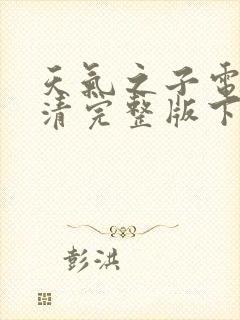 天氣之子電
清完整版下
彭洪